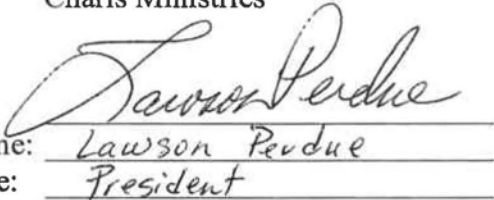 Charis Ministries
Lawson Perdue
ne: Lawson Perdue
e: President